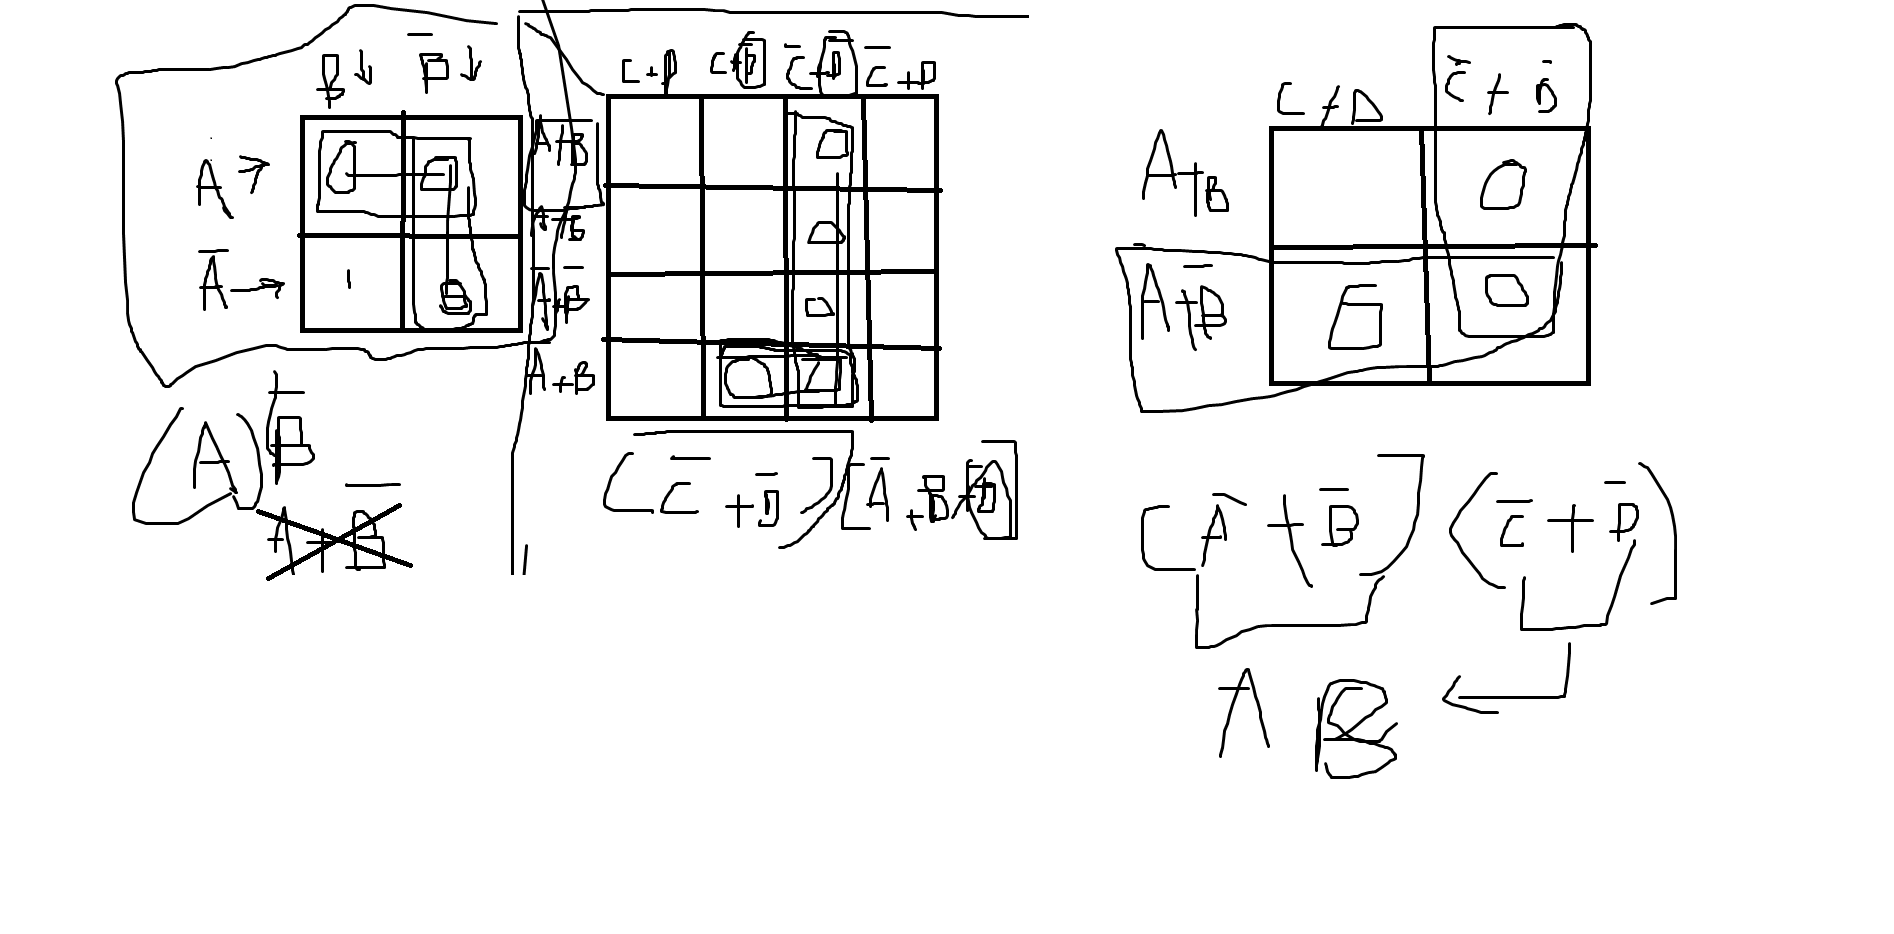 B↓ B̅↓
A→ 0 0
A̅→ 1 0
(A) B̅
C+D C+D̅ C̅+D̅ C̅+D
A+B
A+B̅
A̅+B̅
A̅+B
0
0
0
0 0
(C̅+D̅) [A̅+B+D̅]
C+D C̅+D̅
A+B 0
A̅+B̅ 0 0
[A̅+B̅] (C̅+D̅)
A B ←